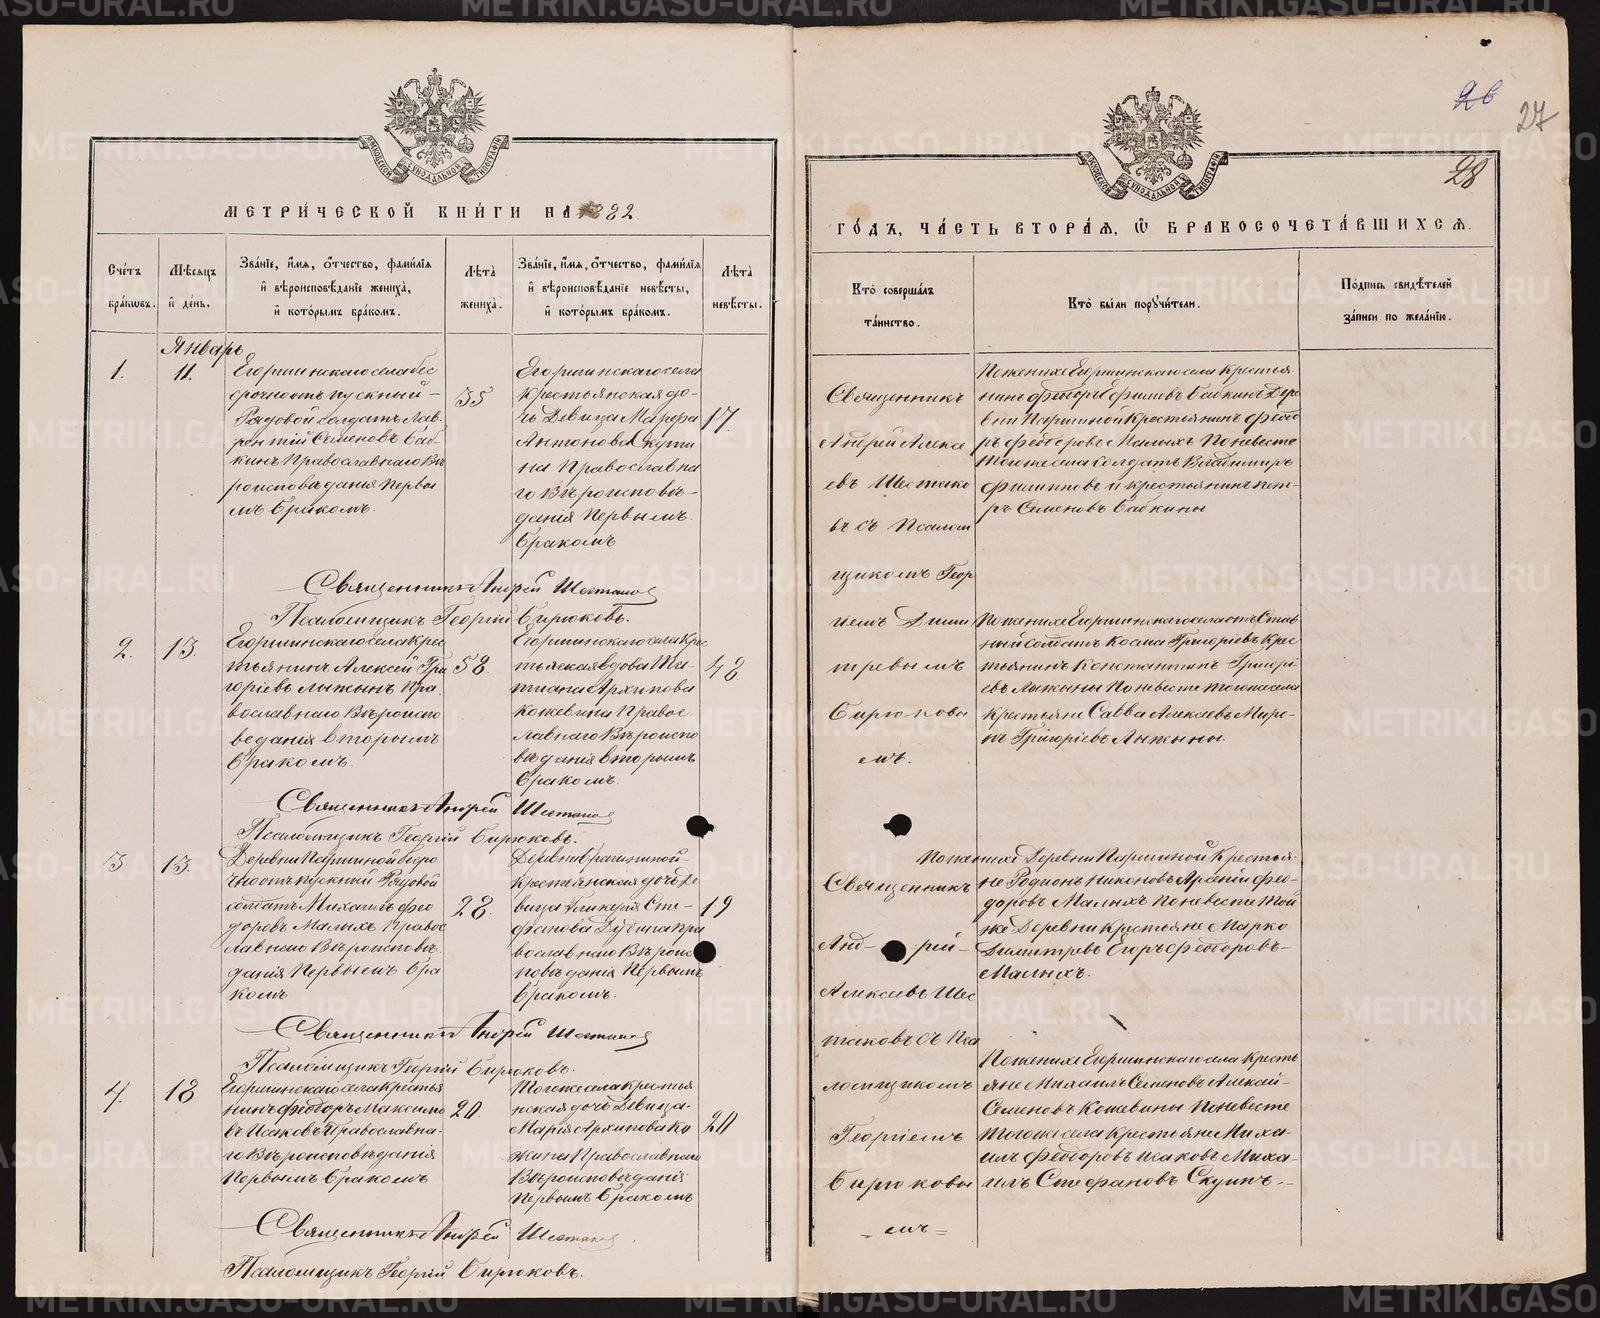 МЕТРИ́ЧЕСКОЙ КНИ́ГИ НА 1882
Сче́тъ бра́ковъ.
Мѣ́сяцъ и҆ де́нь.
Зва́нїе, и҆́мя, о҆́тчество, фами́лїя и҆ вѣроисповѣ́данїе жениха̀, и҆ кото́рымъ бра́комъ.
Лѣ́та жениха̀.
Зва́нїе, и҆́мя, о҆́тчество, фами́лїя и҆ вѣроисповѣ́данїе невѣ́сты, и҆ кото́рымъ бра́комъ.
Лѣ́та невѣ́сты.
Январь
1.
11.
Егоршинскаго села бес
срочноотпускный
Рядовой солдатъ Лав
рентій Семеновъ Баб-
кинъ Православнаго Вѣ
роисповѣданія Первы
мъ бракомъ.
35
Егоршинскаго села
крестьянская до-
чь Девица Марфа
Антонова Скути
на Православна
го Вѣроисповѣ-
данія Первымъ
бракомъ
17.
Священникъ Андрей Шестаковъ
Псаломщикъ Георгій Бирюковъ.
2.
13.
Егоршинскаго села Крес
тьянинъ Алексѣй Гри
горіевъ Лыжинъ Пра
вославнаго Вѣроиспо
веданія вторымъ
бракомъ.
58
Егоршинскаго села Крес
тьянская вдова Та-
тиана Архипова
Кожевина Правос
лавнаго Вѣроиспо
вѣданія вторымъ
бракомъ.
48
Священникъ Андрей Шестаковъ
Псаломщикъ Георгій Бирюковъ.
3
13.
Деревни Паршиной безсро
чноотпускный Рядовой
солдатъ Михаилъ Фео
доровъ Малыхъ Правос
лавнаго Вѣроисповѣ
данія Первымъ бра
комъ
28.
Деревни
крестьянская дочь Де
вица Гликерія Сте-
фанова Дубина Пра
вославнаго Вѣроис
повѣданія Первымъ
бракомъ.
19
Священникъ Андрей Шестаковъ
Псаломщикъ Георгій Бирюковъ.
4.
18
Егоршинскаго села Крестья
нинъ Феодоръ Максимо
въ Исаковъ Православна-
го Вѣроисповѣданія
Первымъ бракомъ
20.
Тогоже села крестья
нская дочь Девица
Марія Архипова Ко
жина Православнаго
Вѣроисповѣданія
Первымъ бракомъ
20
Священникъ Андрей Шестаковъ
Псаломщикъ Георгій Бирюковъ.
26
27
28
ГО́ДЪ, ЧА́СТЬ ВТОРА́Я, Ѿ БРАКОСОЧЕТА́ВШИХСЯ.
Кто̀ соверша́лъ та́инство.
Кто̀ бы́ли поручи́тели.
По́дпись свидѣ́телей за́писи по жела́нїю.
Священникъ
Андрей Алексе
евъ Шестако
въ съ Псалом
щикомъ Геор
гіемъ Дими
тревымъ
Бирюковы
мъ.
По женихе Егоршинскаго села Крестья
нинъ Феодоръ Бабкинъ Дере
вни Паршиной Крестьянинъ Феодо
ръ Феодоровъ Малыхъ По невесте
Тогоже села солдатъ Владимиръ
Филипповъ и крестьянинъ Пет-
ръ Семеновъ Бабкины
По женихе Егоршинскаго села отстав
ный солдатъ Косма Григоріевъ Крес
тьянинъ Константинъ Григорі
евъ Лыжины По невесте тогоже села
крестьяне Савва Алексеевъ
Григоріевъ Лыжины.
Священникъ
Андрей
Алексеевъ Шес
таковъ съ Пса
ломщикомъ
Георгіемъ
Бирюковы
мъ
По женихе Деревни Паршиной Крестья
не Родионъ Никоновъ Арсеній Фео-
доровъ Малыхъ По невесте Той
же Деревни крестьяне Марко
Димитревъ Егоръ Феодоровъ
Малыхъ.
По женихе Егоршинскаго села Кресть
яне Михаилъ Семеновъ Алексей
Семеновъ Кожевины По невесте
Тогоже села крестьяне Миха-
илъ Феодоровъ Исаковъ Миха-
илъ Стефановъ Скутинъ.
METRIKI.GASO-URAL.RU